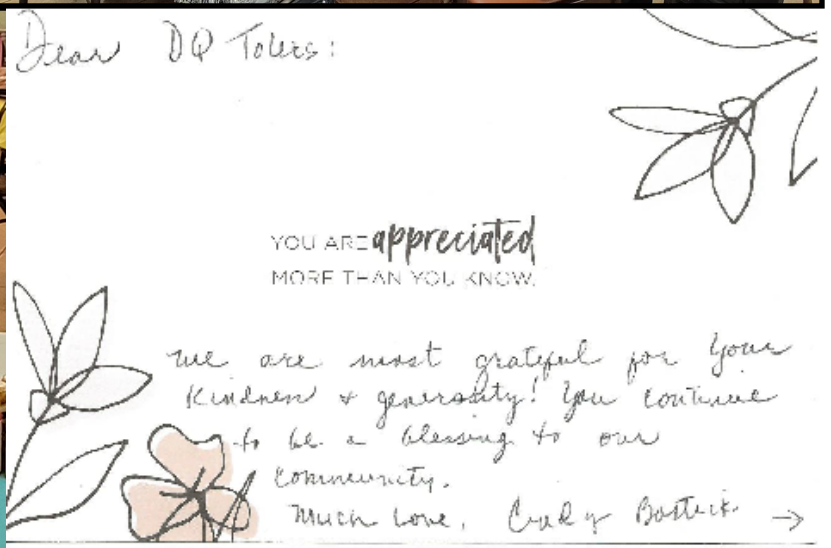 Dear DQ Tolers:
YOU ARE appreciated
MORE THAN YOU KNOW.
We are most grateful for your
Kindness & generosity! You continue
to be a blessing to our
community.
Much Love, Bostick →